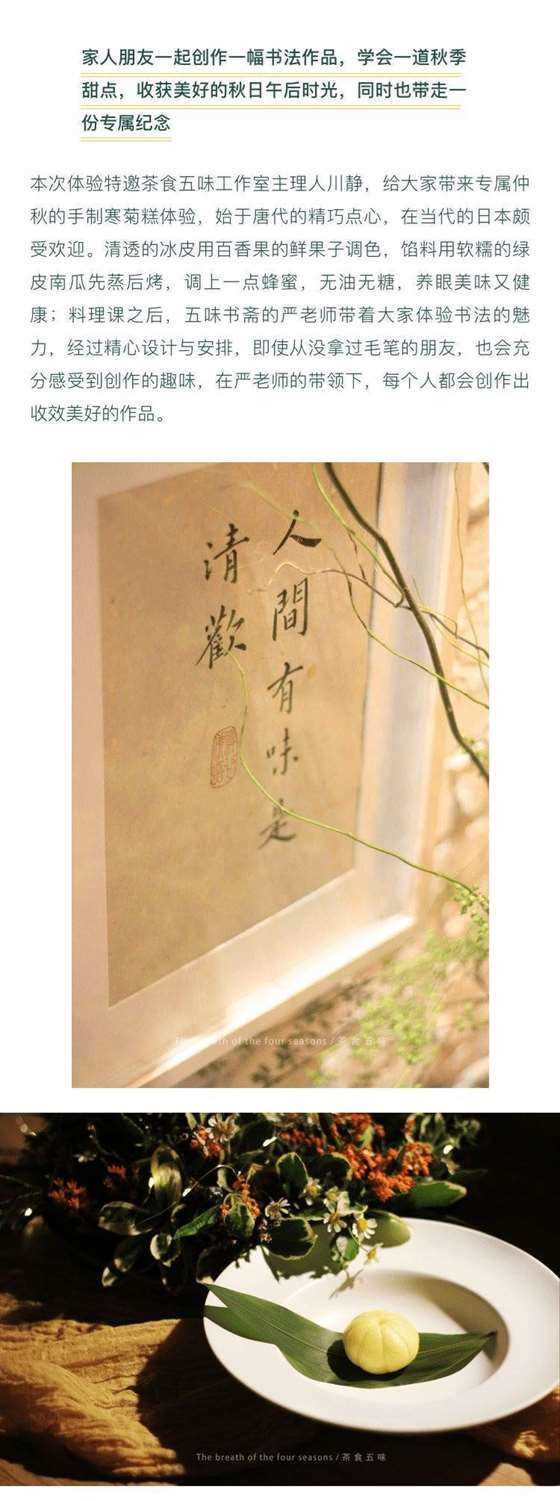 家人朋友一起创作一幅书法作品，学会一道秋季
甜点，收获美好的秋日午后时光，同时也带走一
份专属纪念
本次体验特邀茶食五味工作室主理人川静，给大家带来专属仲
秋的手制寒菊糕体验，始于唐代的精巧点心，在当代的日本颇
受欢迎。清透的冰皮用百香果的鲜果子调色，馅料用软糯的绿
皮南瓜先蒸后烤，调上一点蜂蜜，无油无糖，养眼美味又健
康；料理课之后，五味书斋的严老师带着大家体验书法的魅
力，经过精心设计与安排，即使从没拿过毛笔的朋友，也会充
分感受到创作的趣味，在严老师的带领下，每个人都会创作出
收效美好的作品。
人間有味是
清歡
The breath of the four seasons / 茶食五味
The breath of the four seasons / 茶食五味